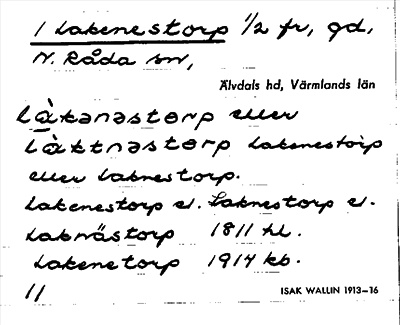 1 Lakenestorp 1/2 fr, gd,
N. Råda sn,
Älvdals hd, Värmlands län
làkanəstorp eller
làktnəstorp Lakenestorp
eller Laknestorp.
Lakenestorp el. Laknestorp el.
Laknästorp 1811 hl.
Lakenetorp 1917 kb.
11
ISAK WALLIN 1913–16